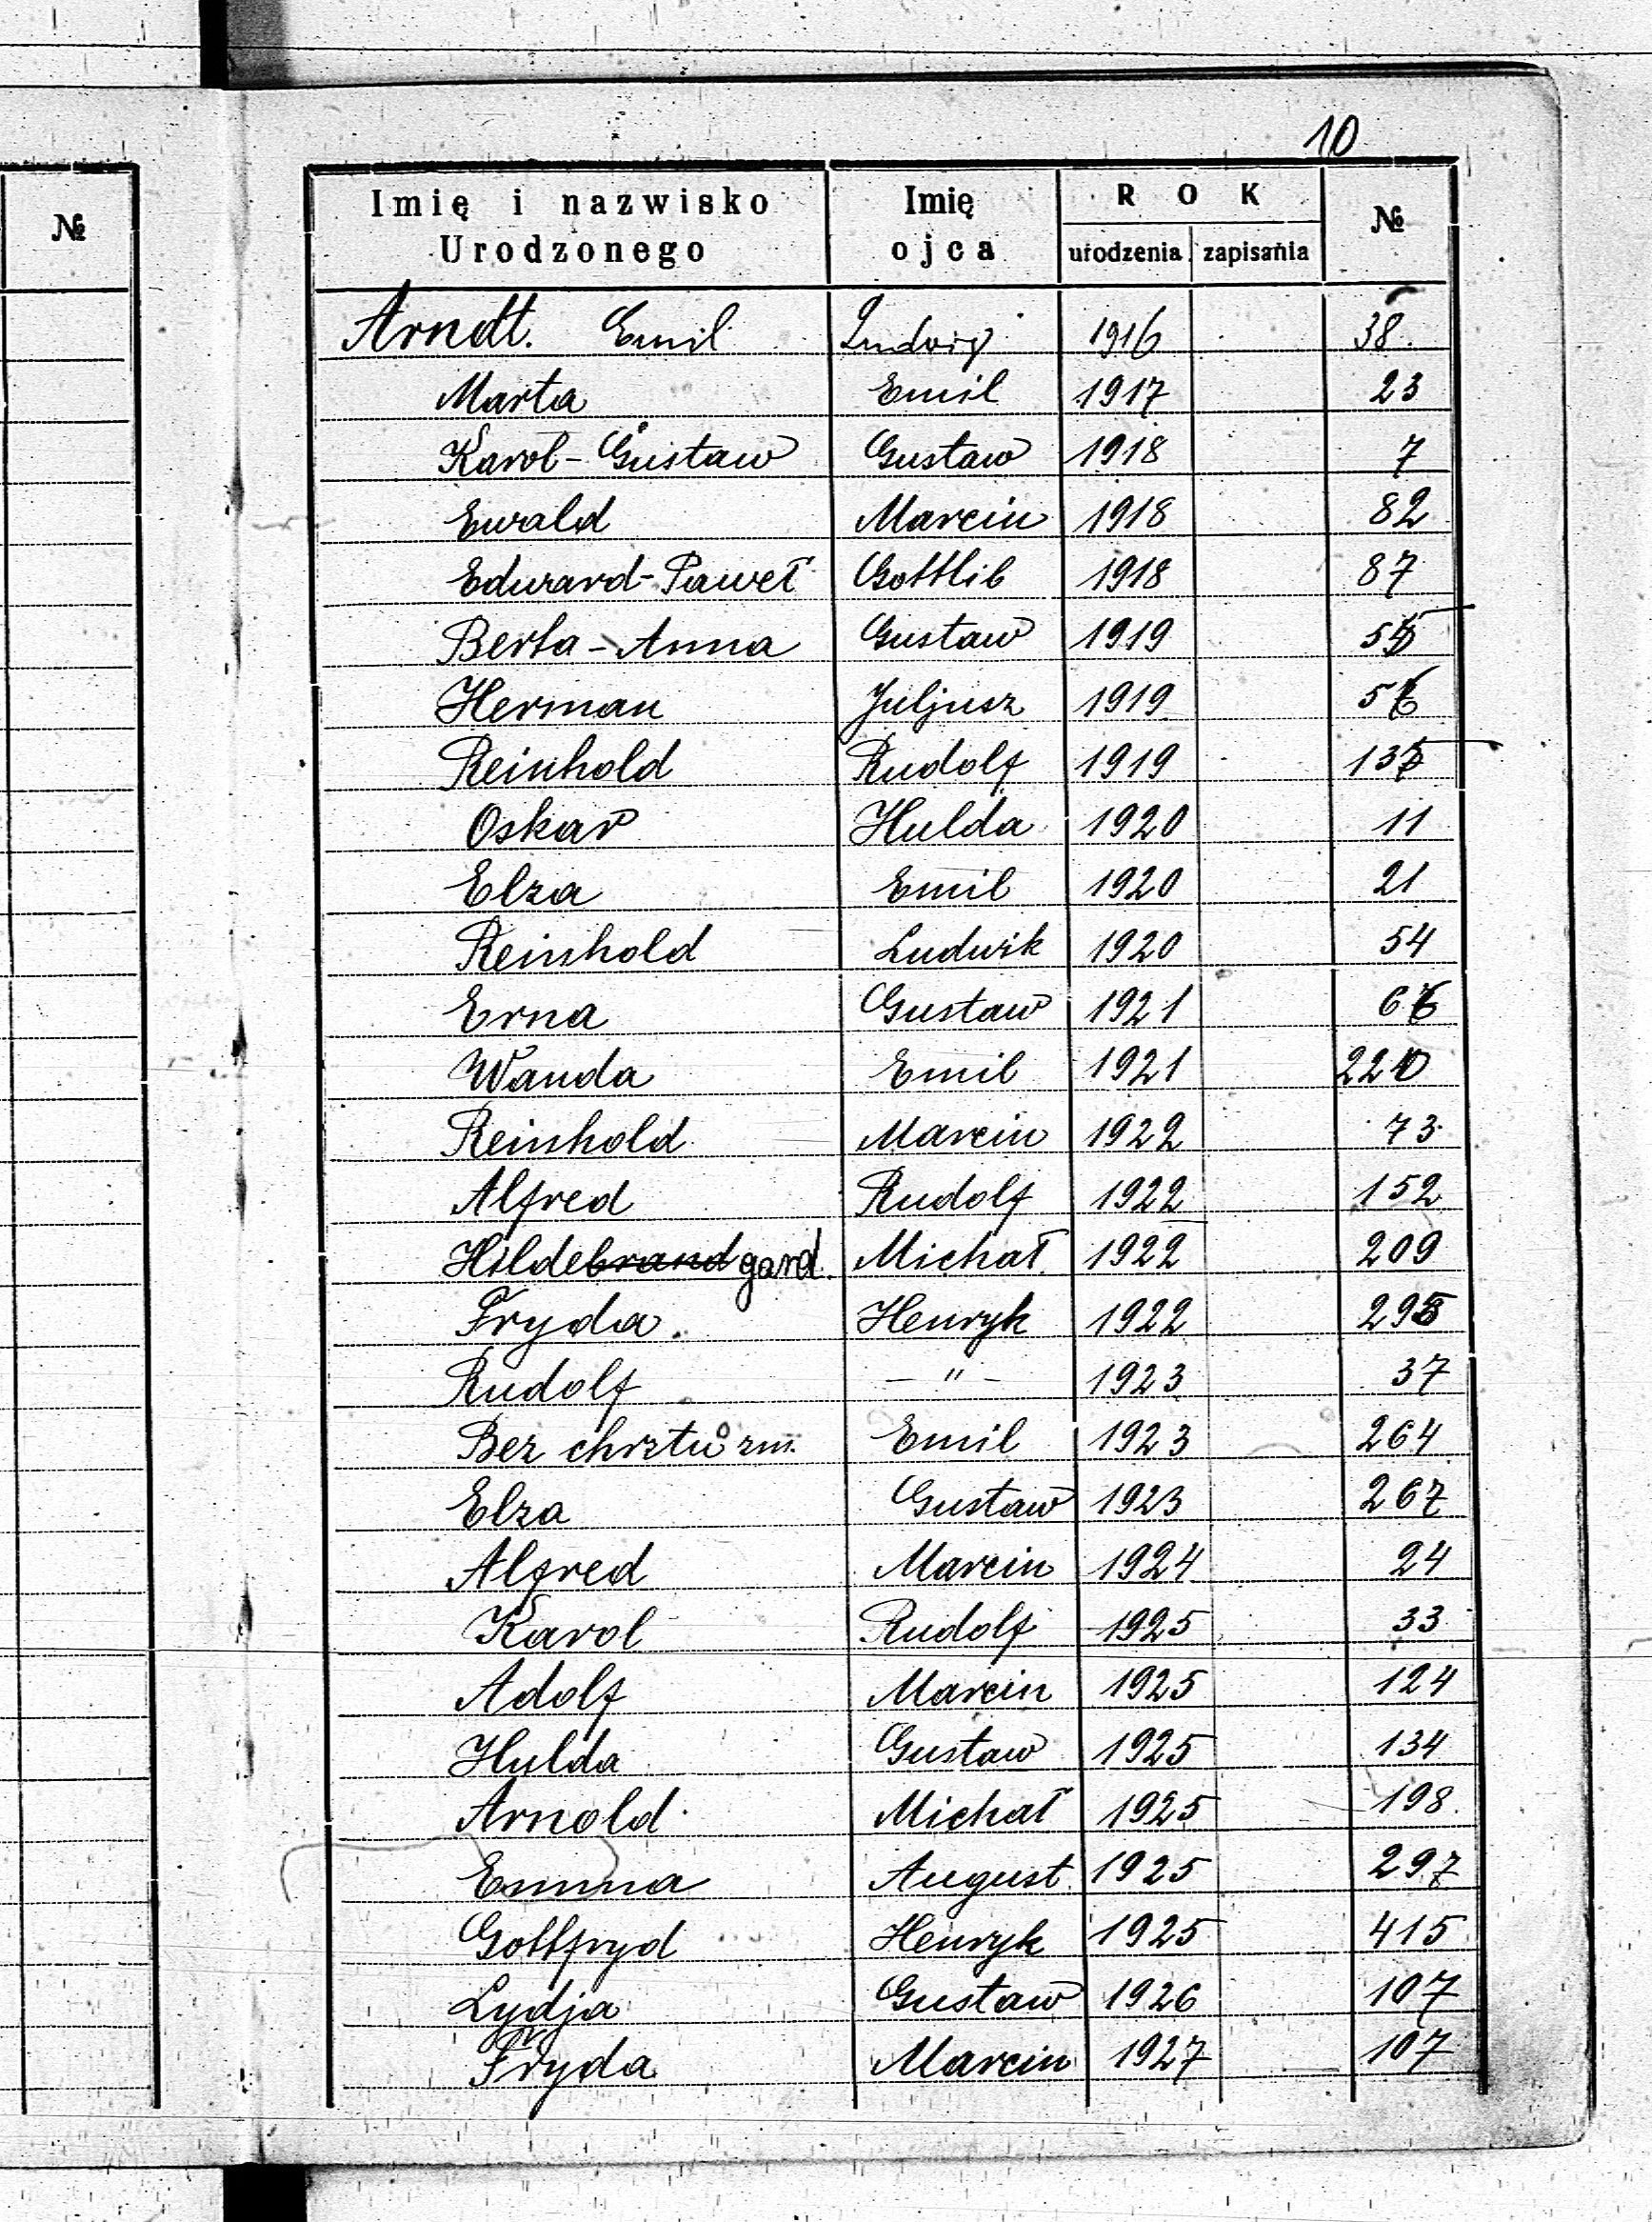 10
№
Imię i nazwisko Urodzonego | Imię ojca | ROK urodzenia | zapisania | №
Arndt. Emil Ludwig 1916 38.
Marta Emil 1917 23
Karol-Gustaw Gustaw 1918 7
Ewald Marcin 1918 82
Edward-Paweł Gottlib 1918 87
Berta-Anna Gustaw 1919
Herman Juljusz 1919 56
Reinhold Rudolf 1919 135
Oskar Hulda 1920 11
Elza Emil 1920 21
Reinhold Ludwik 1920 54
Erna Gustaw 1921 66
Wanda Emil 1921 220
Reinhold Marcin 1922 73
Alfred Rudolf 1922 152
Hildebrand gard. Michał 1922 209
Fryda. Henryk 1922
Rudolf - " - 1923 37
Bez chrztu zm. Emil 1923 264
Elza Gustaw 1923 267
Alfred Marcin 1924 24
Karol Rudolf 1925 33
Adolf Marcin 1925 124
Hulda Gustaw 1925 134
Arnold Michał 1925 198
Emma August 1925 297
Gottfryd Henryk 1925 415
Lydja Gustaw 1926 107
Fryda Marcin 1927 107